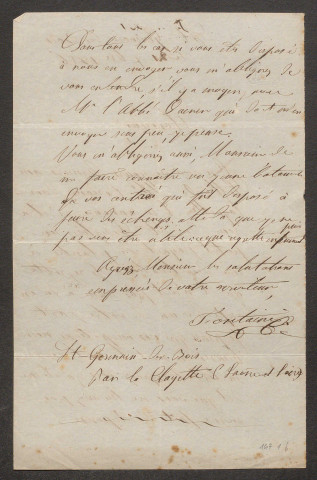 Dans tous les cas si vous êtes disposé
à nous en envoyer vous m'obligerez de
vous entendre s'il y a moyen avec
Mr l'Abbé qui doit m'en
envoyer sous peu, je pense.
Vous m'obligerez aussi, Monsieur de
me faire connaître un jeune botaniste
de vos contrées qui soit disposé à
faire des échanges, attendu que je ne
pas être à l'époque
Agréez, Monsieur les salutations
empressées de votre serviteur
Fontaine
St Germain des Bois
Par la Clayette (Saône et Loire)